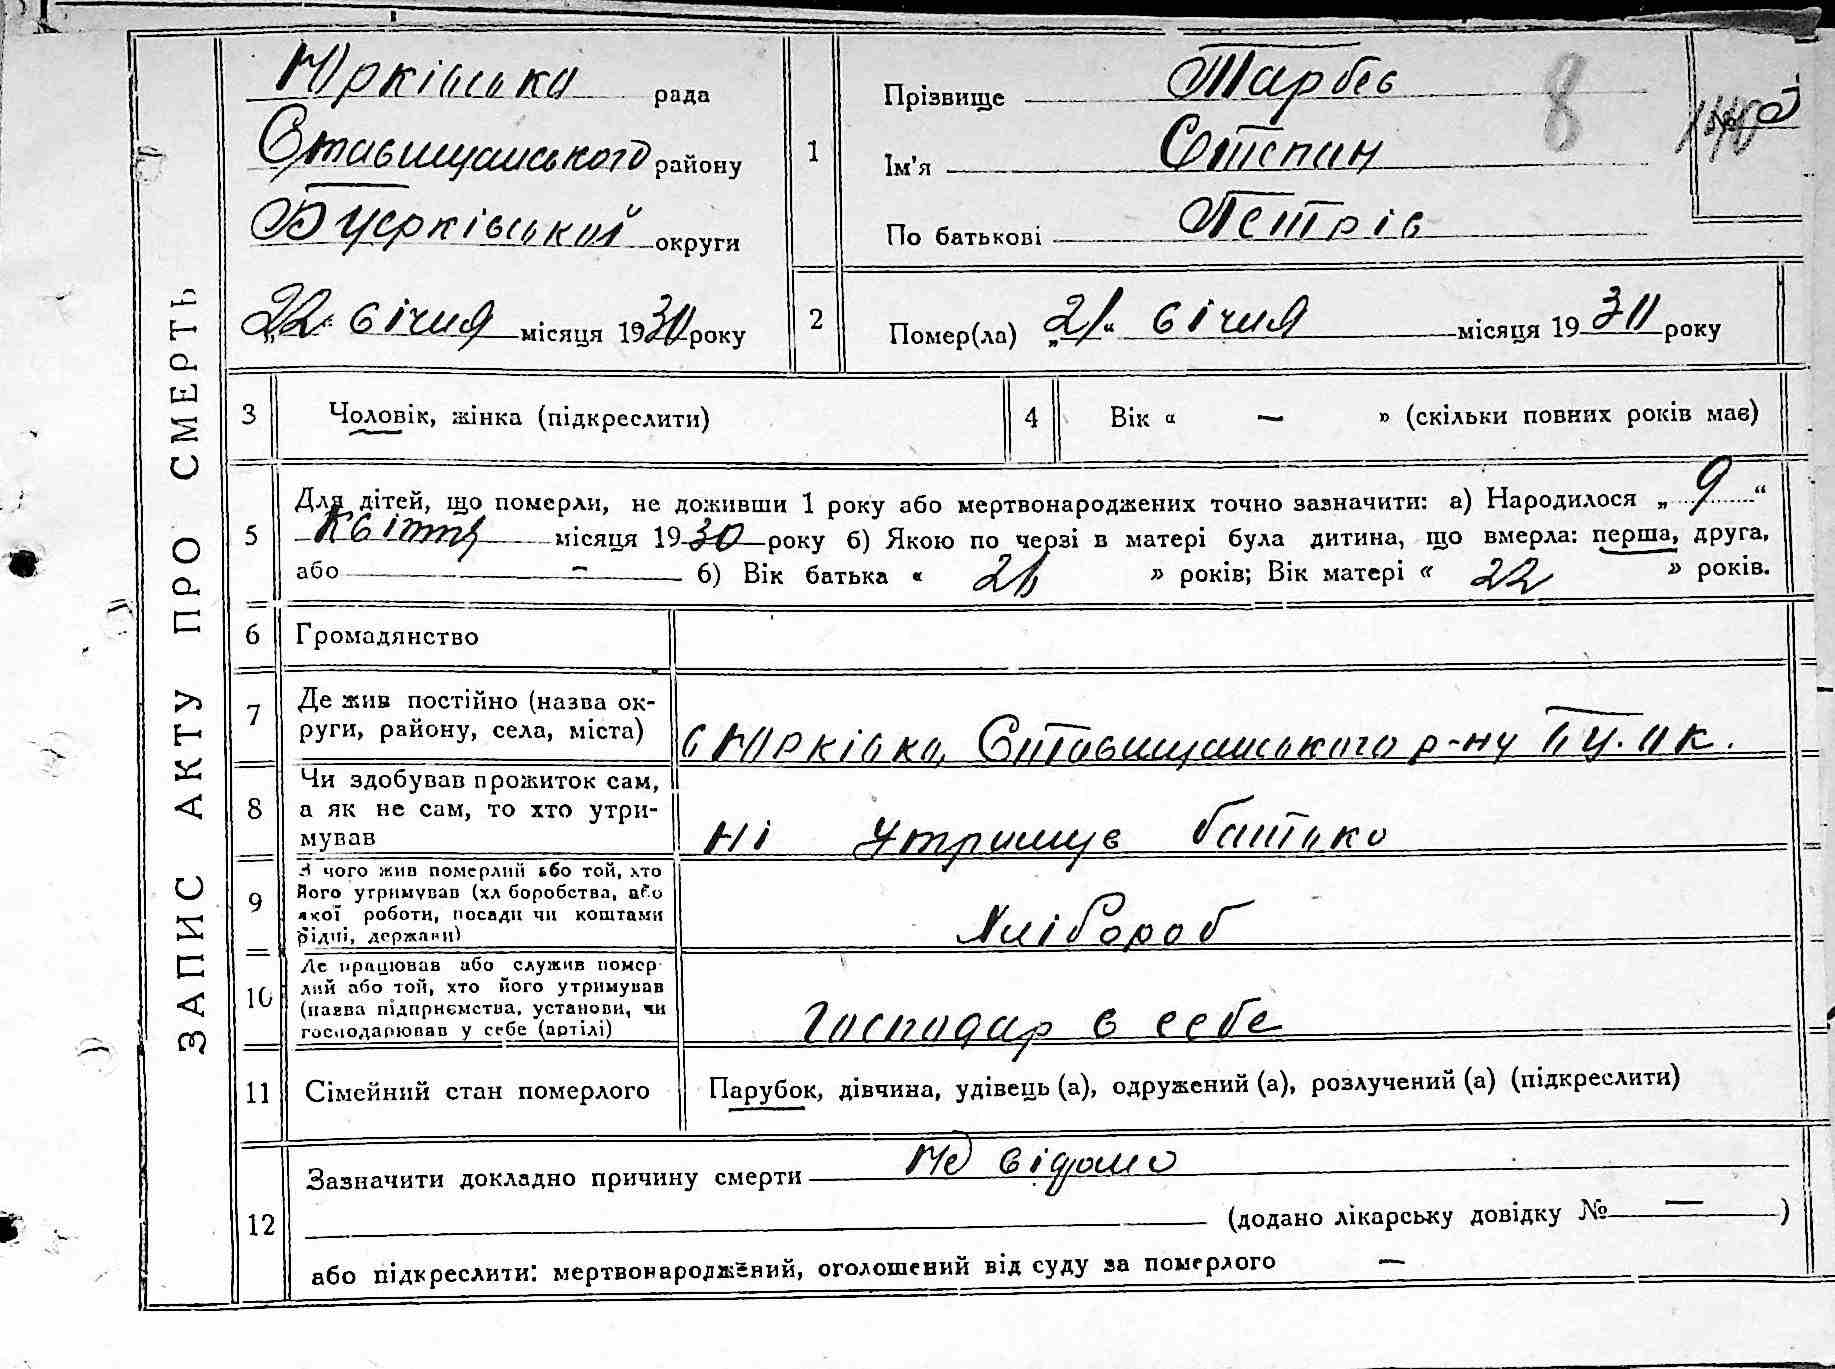 ЗАПИС АКТУ ПРО СМЕРТЬ
Юрківська рада
Ставищанського району
Б Церківської округи
„22“ січня місяця 1930 року
1
Прізвище Тарбєв
Ім'я Степан
По батькові Петрів
8
№ 5
2
Помер(ла) „21“ січня місяця 1930 року
3 Чоловік, жінка (підкреслити)
4 Вік « — » (скільки повних років має)
5
Для дітей, що померли, не доживши 1 року або мертвонароджених точно зазначити: а) Народилося „9“
квітня місяця 1930 року б) Якою по черзі в матері була дитина, що вмерла: перша, друга,
або – б) Вік батька « » років; Вік матері « 22 » років.
6 Громадянство
7 Де жив постійно (назва ок-
руги, району, села, міста)
с Юрківка, Ставищанського р-ну БЦ. ок.
8 Чи здобував прожиток сам,
а як не сам, то хто утри-
мував
ні утримує батько
9 З чого жив померлий або той, хто
його утримував (хл боробства, або
якої роботи, посади чи коштами
рідні, держави)
Хлібороб
10 Де працював або служив помер-
лий або той, хто його утримував
(назва підприємства, установи, чи
господарював у себе (артілі)
господар в себе
11 Сімейний стан померлого Парубок, дівчина, удівець (а), одружений (а), розлучений (а) (підкреслити)
12
Зазначити докладно причину смерти Не відомо
(додано лікарську довідку № — )
або підкреслити: мертвонароджений, оголошений від суду за померлого –